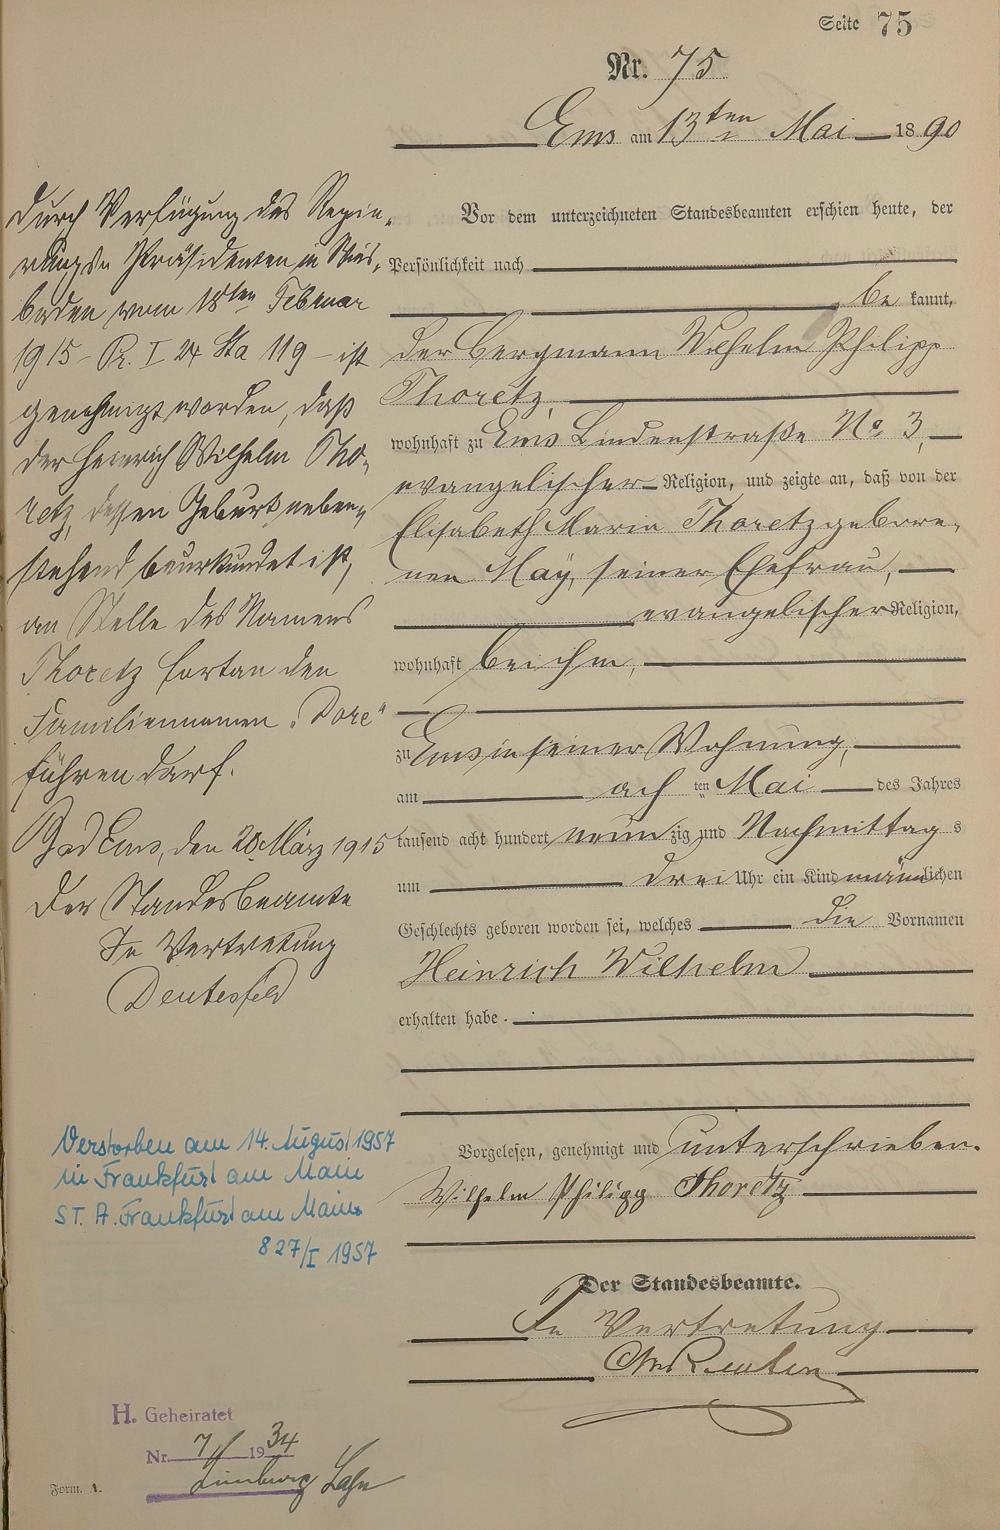 Seite 75
Nr. 75
Ems am 13ten Mai 1890
Vor dem unterzeichneten Standesbeamten erschien heute, der
Persönlichkeit nach
be kannt,
der Bergmann Wilhelm Philipp
Thoretz,
wohnhaft zu Ems Lindenstraße No 3,
evangelischer Religion, und zeigte an, daß von der
Elisabeth Maria Thoretz gebore-
nen May, seiner Ehefrau,
evangelischer Religion,
wohnhaft bei ihm,
zu Ems in seiner Wohnung,
am ach ten Mai des Jahres
tausend acht hundert neun zig und Nachmittag s
um drei Uhr ein Kind männlichen
Geschlechts geboren worden sei, welches die Vornamen
Heinrich Wilhelm
erhalten habe.
Vorgelesen, genehmigt und unterschrieben.
Wilhelm Philipp Thoretz
Der Standesbeamte.
In Vertretung
Durch Verfügung des Regie-
rungs Präsidenten in Wies-
baden vom 18ten Februar
1915 - Pr. I 24 Sta 119 - ist
genehmigt worden, daß
der Heinrich Wilhelm Tho-
retz, dessen Geburt neben-
stehend beurkundet ist,
an Stelle des Namens
Thoretz fortan den
Familiennamen "Dore"
führen darf.
Bad Ems, den 20. März 1915
Der Standesbeamte
In Vertretung
Verstorben am 14. August 1957
in Frankfurt am Main
ST. A. Frankfurt am Main
827/I 1957
H. Geheiratet
Nr. 7 1934
Limburg Lahn
Form. A.